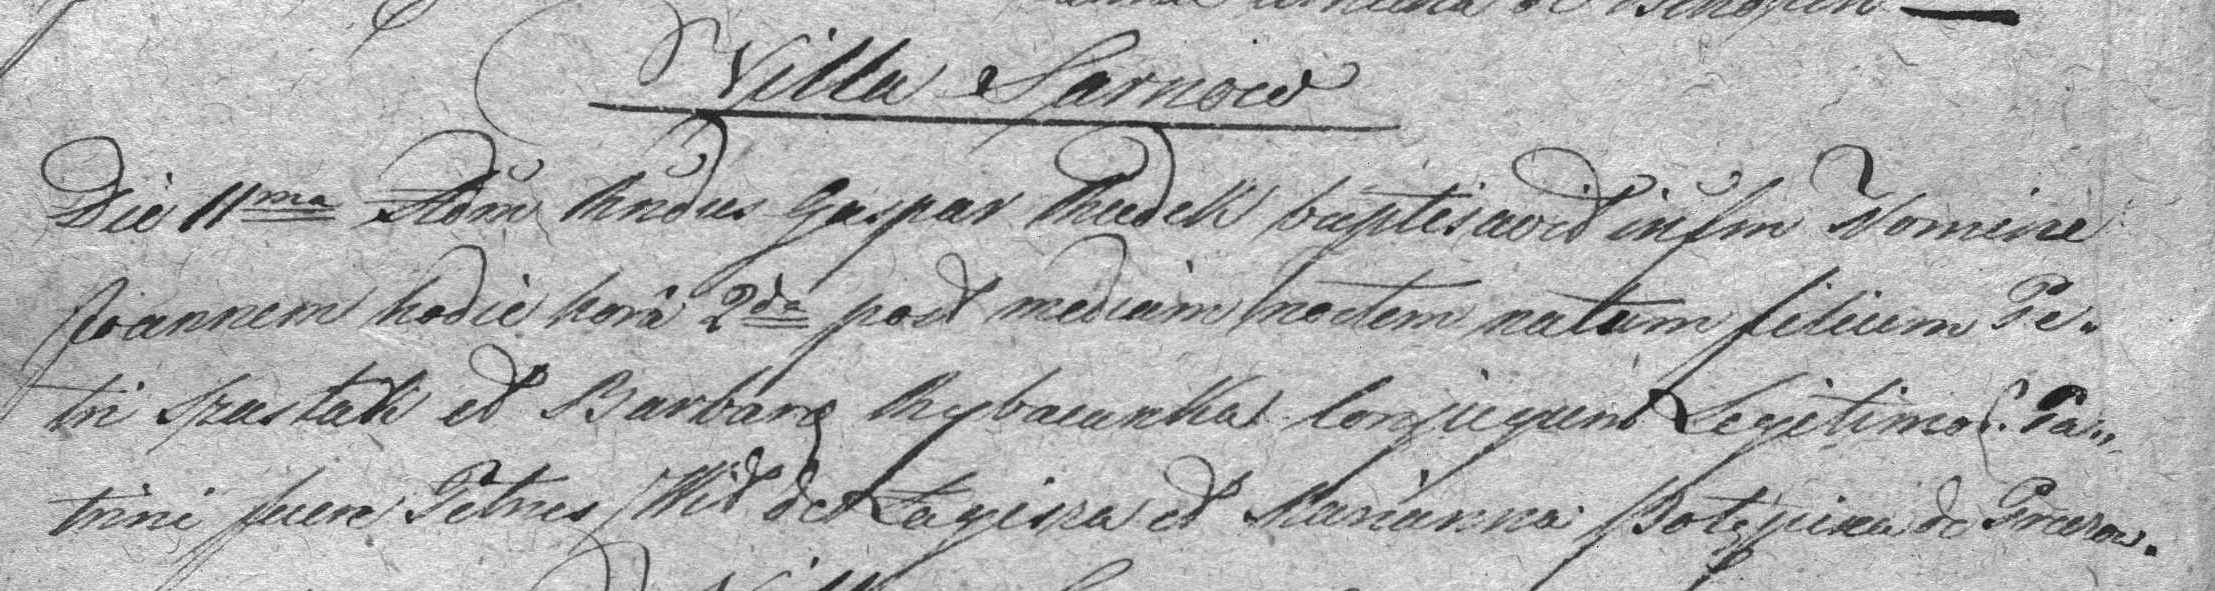 Villa Sarnow
Die 11ma Adm Rndus Gaspar baptisavit infm Nomine
Joannem hodie horâ 2da post mediam noctem natum filium Pe-
tri et Barbara Conjugum Legitimo. Pa-
trini fuere Petrus de Lagisza et Marianna de